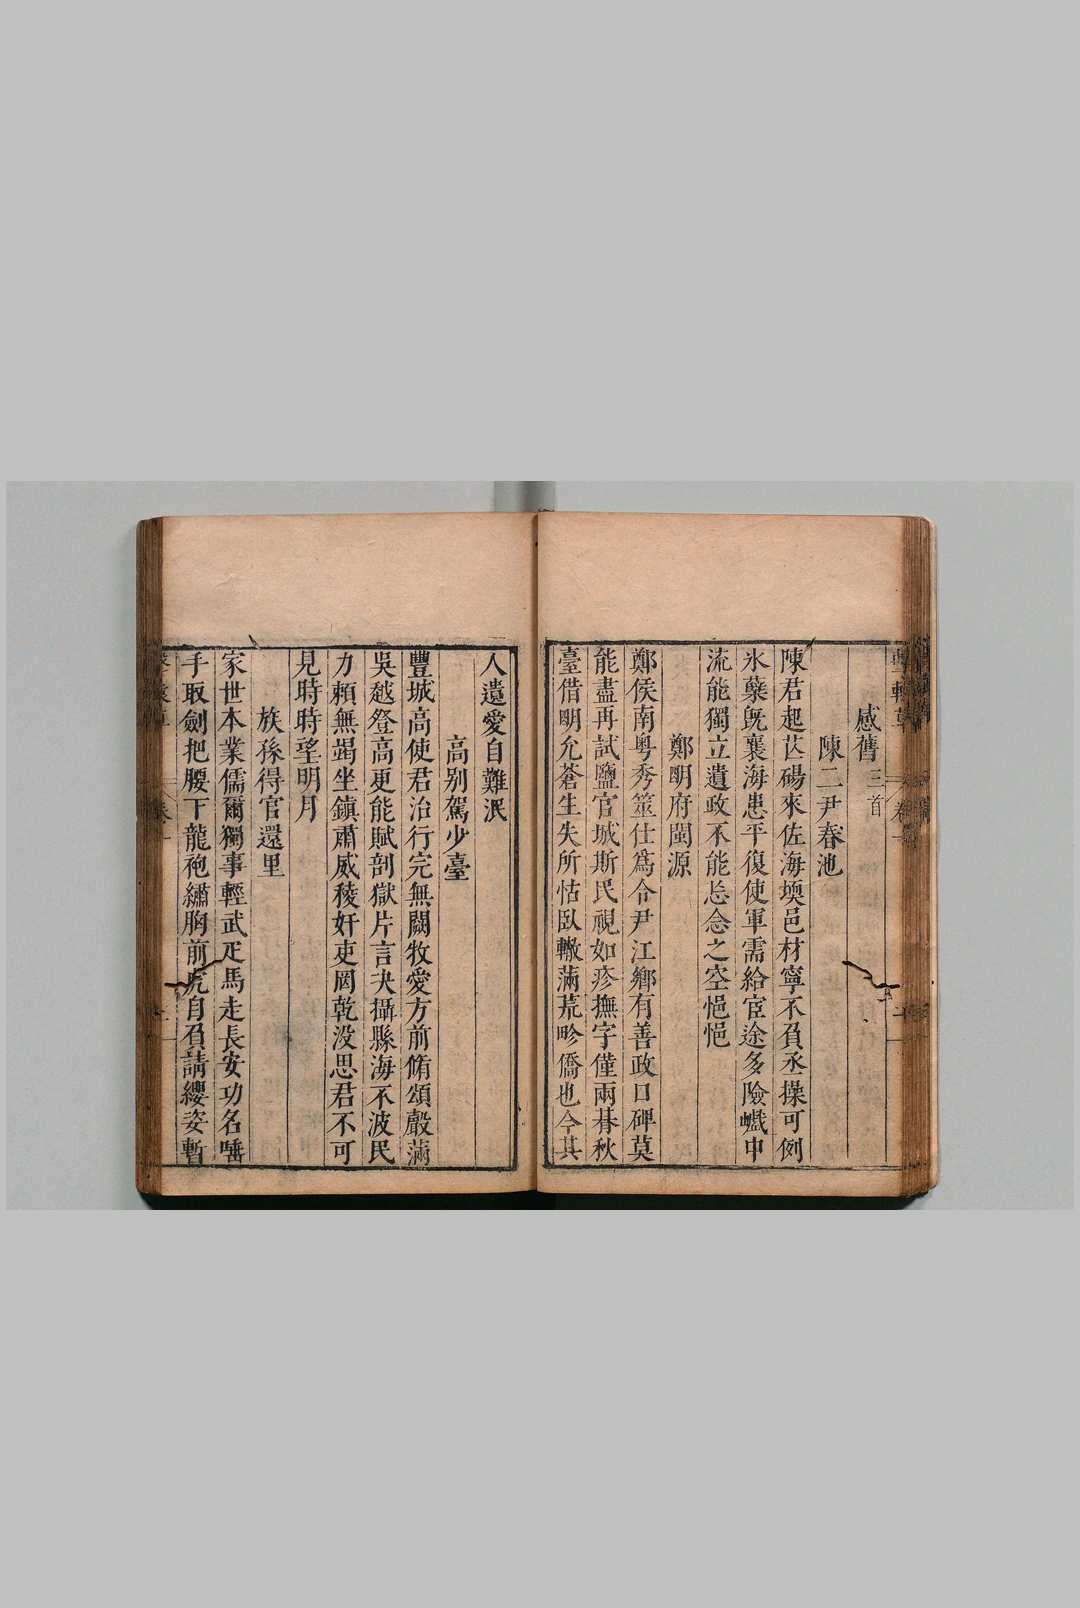 感舊三首
陳二尹春池
陳君起芒碭來佐海堧邑材寧不負丞操可例
氷蘗旣襄海患平復使軍需給宦途多險巇中
流能獨立遺政不能忘念之空悒悒
鄭明府閩源
鄭侯南粤秀筮仕爲令尹江鄉有善政口碑莫
能盡再試鹽官城斯民視如疹撫字僅兩朞秋
臺借明允蒼生失所怙臥轍滿荒畛僑也今其
人遺愛自難泯
高别駕少臺
豐城高使君治行完無闕牧愛方前脩頌聲滿
吳越登高更能賦剖獄片言决攝縣海不波民
力頼無竭坐鎮肅威稜奸吏罔乾没思君不可
見時時望明月
族孫得官還里
家世本業儒爾獨事輕武疋馬走長安功名唾
手取劍把腰下龍袍繡胸前虎自負請纓姿暫